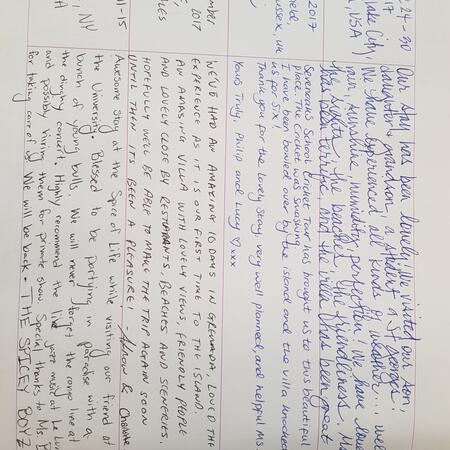 24-30
Our stay has been lovely! We visited our son,
17
daughter & grandson, a student a St Georges.
Lake City,
We have experienced all kinds of weather...
USA
rain, sunshine, humidity, perfection! We have
the sights, the beaches, the friendliness.
has been terrific, and the villa has been great
2017
Sevenoaks School Cricket Tour has brought us to this beautiful
place. The Cricket was smashing
I have been bowled over by the island and the villa knocked
ussex, UK
us for six!
Thank you for the lovely stay, very well planned, and helpful Ms.
Yours Truly, Philip and Lucy ♡xxx
mber
WE'VE HAD AN AMAZING 10 DAYS IN GRENADA, LOVED THE
2017
EXPERIENCE AS IT IS OUR FIRST TIME TO THE ISLAND.
AN AMASING VILLA WITH LOVELY VIEWS, FRIENDLY PEOPLE
LES
AND LOVELY CLOSE BY RESTAURANTS, BEACHES AND SCENERIES.
HOPEFULLY WE'LL BE ABLE TO MAKE THE TRIP AGAIN SOON
UNTIL THEN ITS BEEN A PLEASURE! - &
11-15
Awesome stay at the Spice of Life while visiting our friend at
the University. Blessed to be partying in paradise with a
, NY
bunch of young bulls. We will never forget the congo line at
A
the dinghy concert. Highly recommend the live jazz music at La Lun
and possibly hiring them for private show. Special thanks to Ms. B
for taking care of us. We will be back - THE SPICEY BOYZ